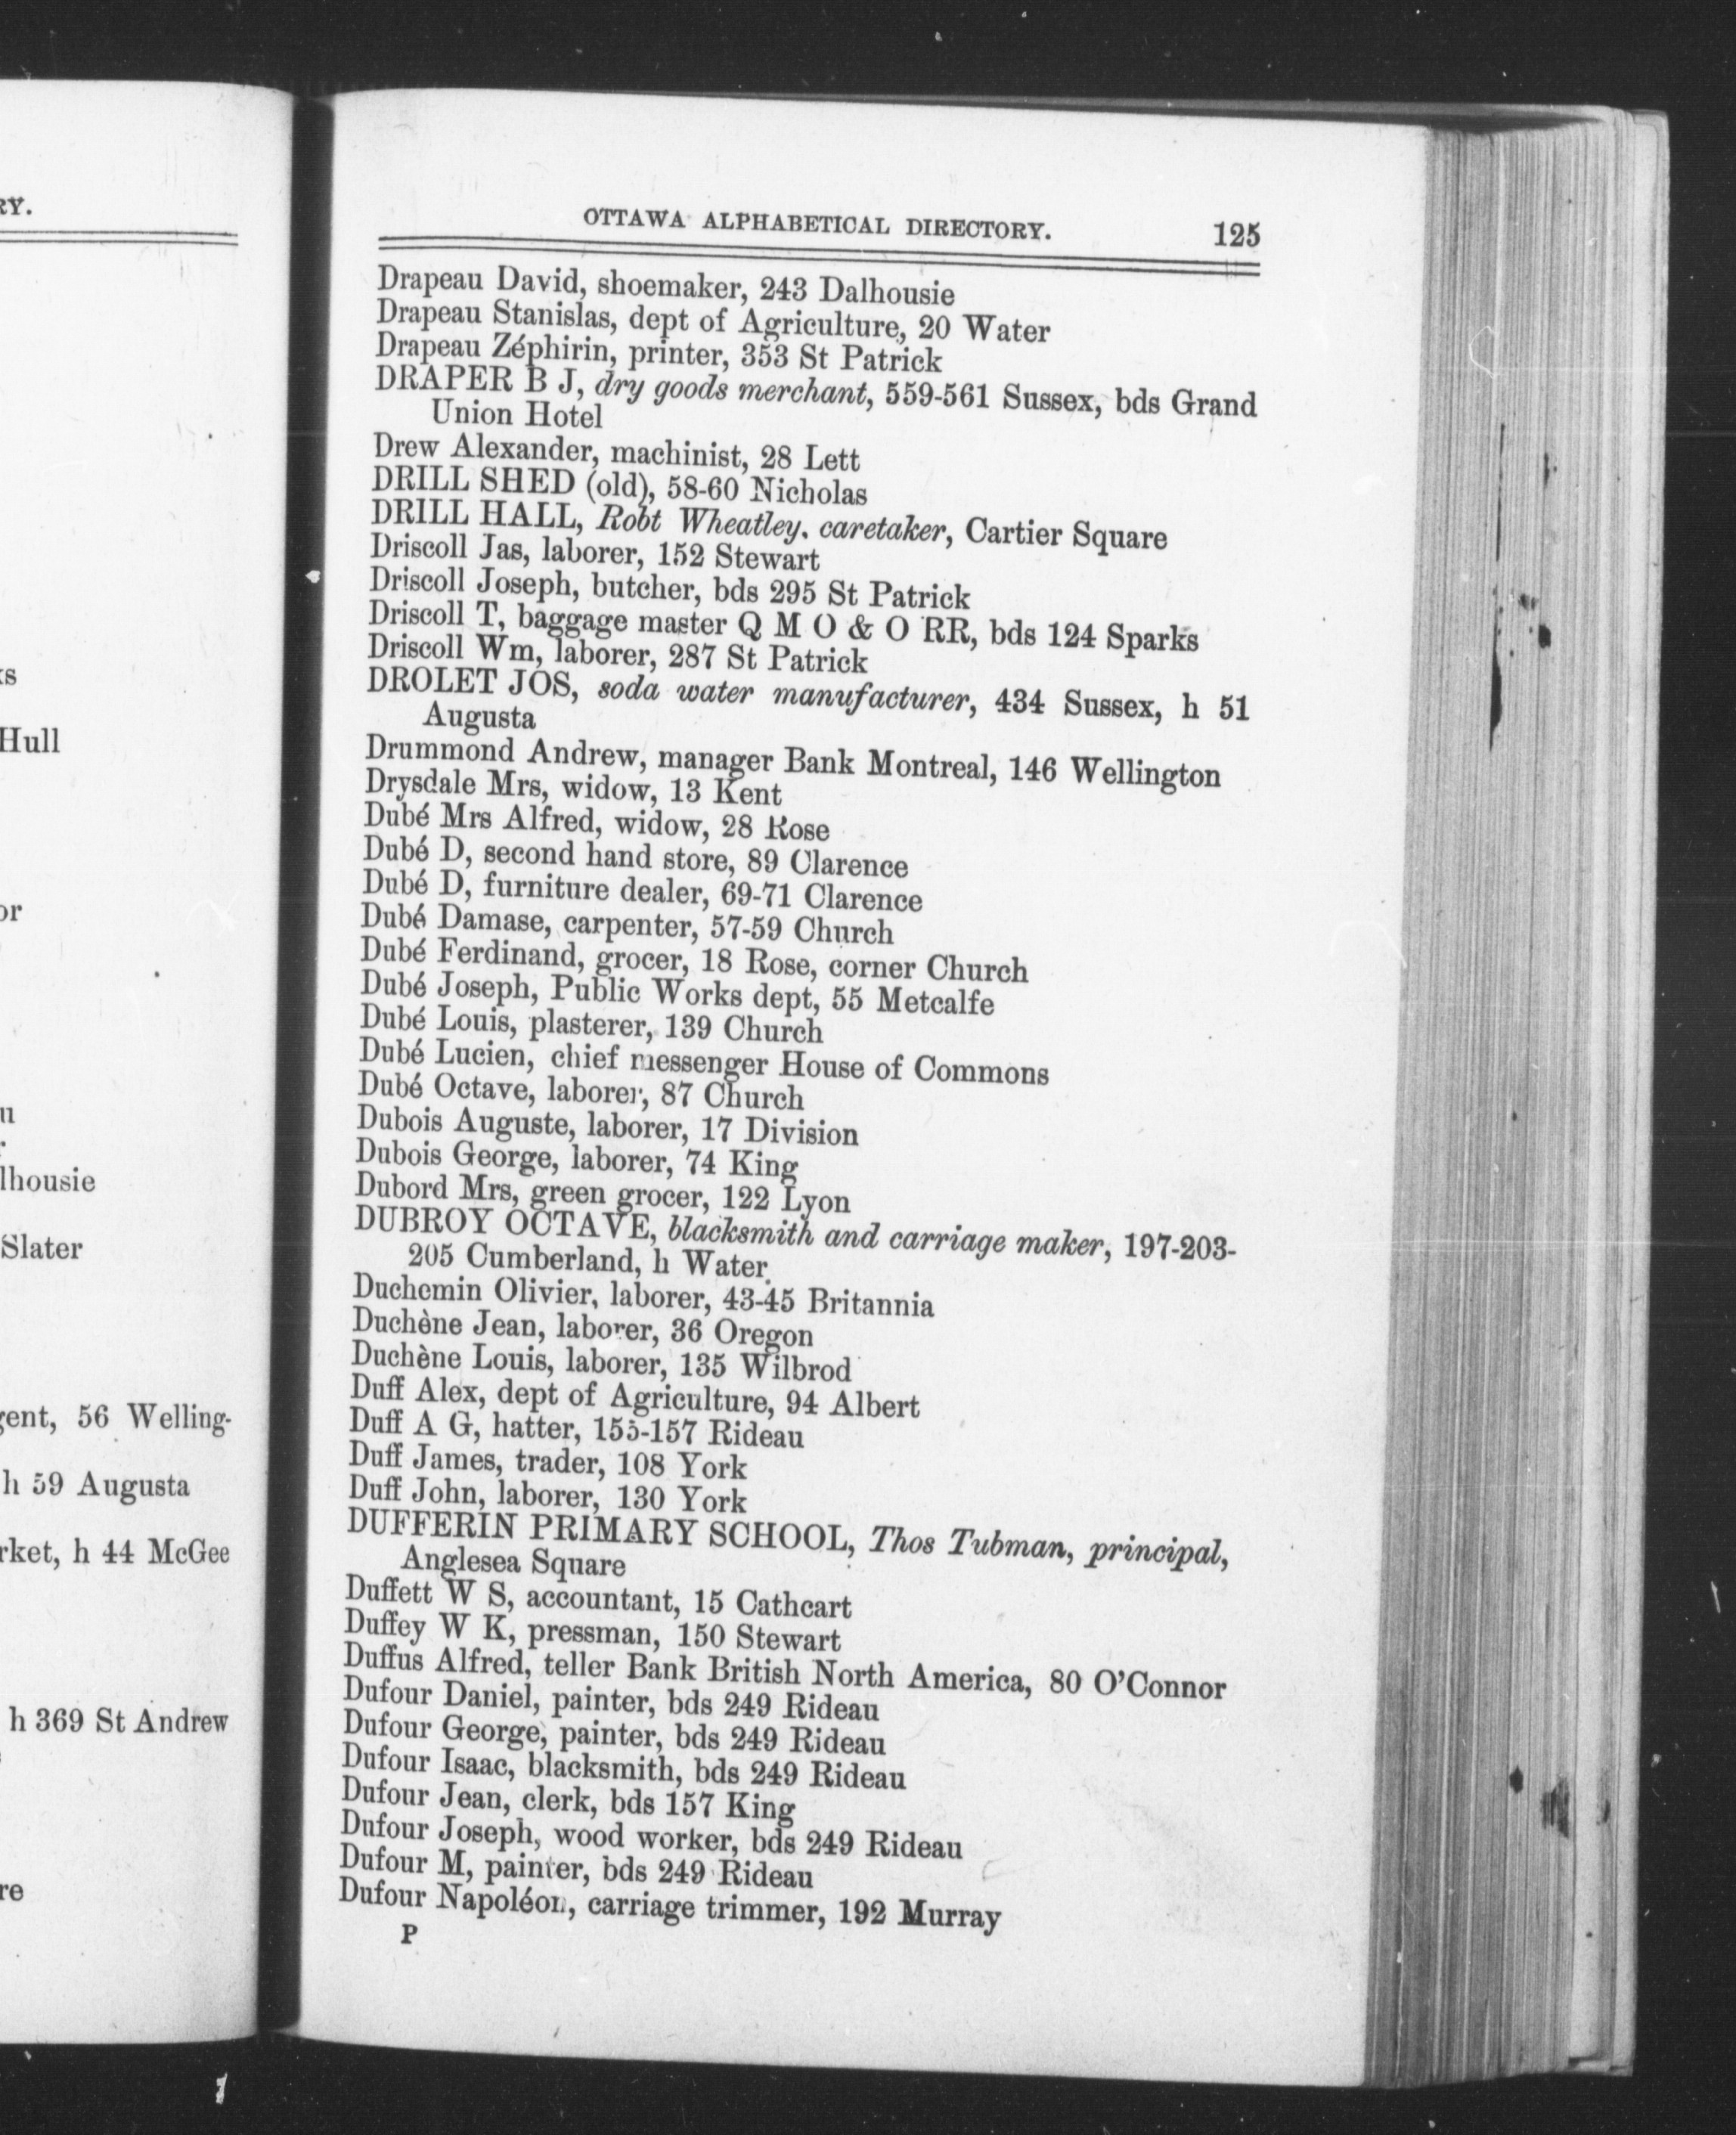 RY.
ks
Hull
or
u
lhousie
Slater
gent, 56 Welling-
h 59 Augusta
rket, h 44 McGee
h 369 St Andrew
re
OTTAWA ALPHABETICAL DIRECTORY. 125
Drapeau David, shoemaker, 243 Dalhousie
Drapeau Stanislas, dept of Agriculture, 20 Water
Drapeau Zéphirin, printer, 353 St Patrick
DRAPER B J, dry goods merchant, 559-561 Sussex, bds Grand
Union Hotel
Drew Alexander, machinist, 28 Lett
DRILL SHED (old), 58-60 Nicholas
DRILL HALL, Robt Wheatley, caretaker, Cartier Square
Driscoll Jas, laborer, 152 Stewart
Driscoll Joseph, butcher, bds 295 St Patrick
Driscoll T, baggage master Q M O & O RR, bds 124 Sparks
Driscoll Wm, laborer, 287 St Patrick
DROLET JOS, soda water manufacturer, 434 Sussex, h 51
Augusta
Drummond Andrew, manager Bank Montreal, 146 Wellington
Drysdale Mrs, widow, 13 Kent
Dubé Mrs Alfred, widow, 28 Rose
Dubé D, second hand store, 89 Clarence
Dubé D, furniture dealer, 69-71 Clarence
Dubé Damase, carpenter, 57-59 Church
Dubé Ferdinand, grocer, 18 Rose, corner Church
Dubé Joseph, Public Works dept, 55 Metcalfe
Dubé Louis, plasterer, 139 Church
Dubé Lucien, chief messenger House of Commons
Dubé Octave, laborer, 87 Church
Dubois Auguste, laborer, 17 Division
Dubois George, laborer, 74 King
Dubord Mrs, green grocer, 122 Lyon
DUBROY OCTAVE, blacksmith and carriage maker, 197-203-
205 Cumberland, h Water
Duchemin Olivier, laborer, 43-45 Britannia
Duchène Jean, laborer, 36 Oregon
Duchène Louis, laborer, 135 Wilbrod
Duff Alex, dept of Agriculture, 94 Albert
Duff A G, hatter, 155-157 Rideau
Duff James, trader, 108 York
Duff John, laborer, 130 York
DUFFERIN PRIMARY SCHOOL, Thos Tubman, principal,
Anglesea Square
Duffett W S, accountant, 15 Cathcart
Duffey W K, pressman, 150 Stewart
Duffus Alfred, teller Bank British North America, 80 O'Connor
Dufour Daniel, painter, bds 249 Rideau
Dufour George, painter, bds 249 Rideau
Dufour Isaac, blacksmith, bds 249 Rideau
Dufour Jean, clerk, bds 157 King
Dufour Joseph, wood worker, bds 249 Rideau
Dufour M, painter, bds 249 Rideau
Dufour Napoléon, carriage trimmer, 192 Murray
P